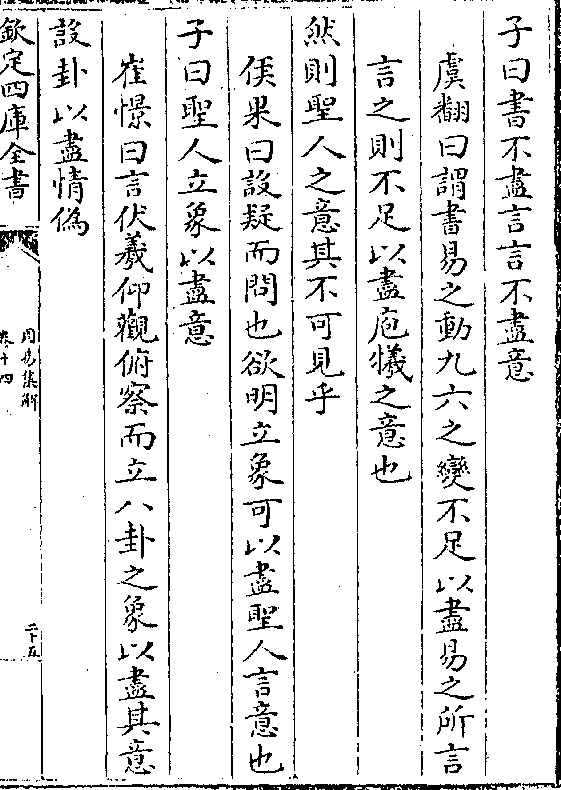 子曰書不盡言言不盡意
虞翻曰謂書易之動九六之變不足以盡易之所言
言之則不足以盡庖犧之意也
然則聖人之意其不可見乎
侯果曰設疑而問也欲明立象可以盡聖人言意也
子曰聖人立象以盡意
崔憬曰言伏羲仰觀俯察而立八卦之象以盡其意
設卦以盡情偽
欽定四庫全書
周易集解
卷十四
二十五